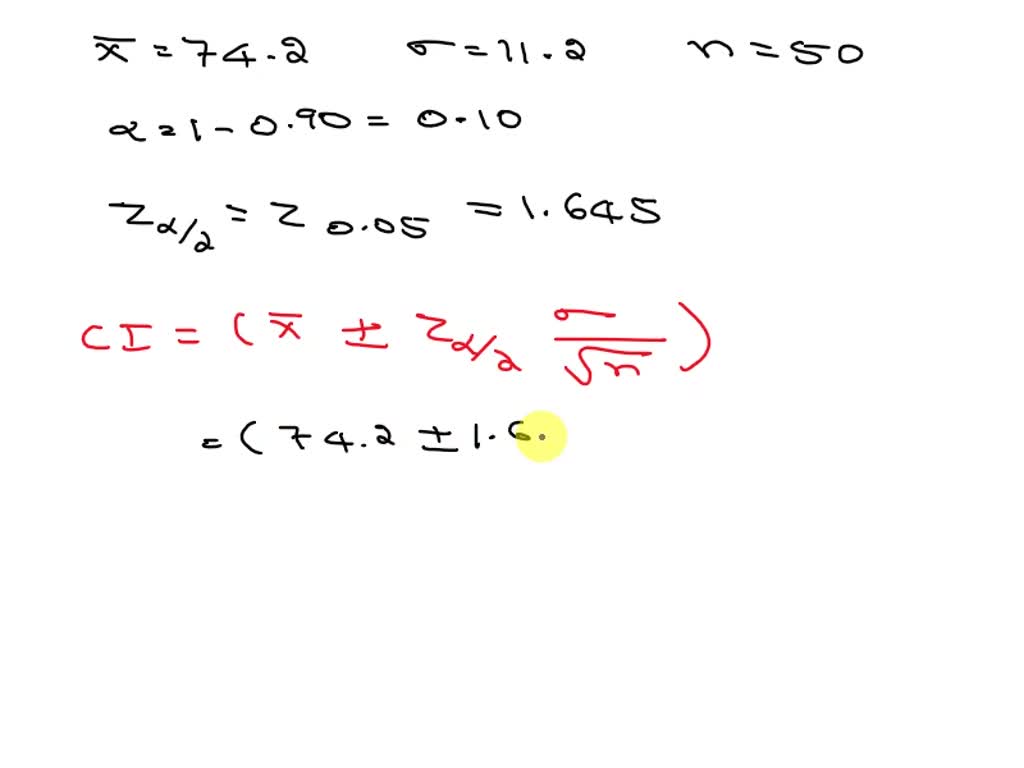 x̄ = 74.2 σ = 11.2 n = 50
α = 1 - 0.90 = 0.10
Zα/2 = Z 0.05 = 1.645
CI = (x̄ ± Zα/2 σ/√n)
= (74.2 ± 1.6